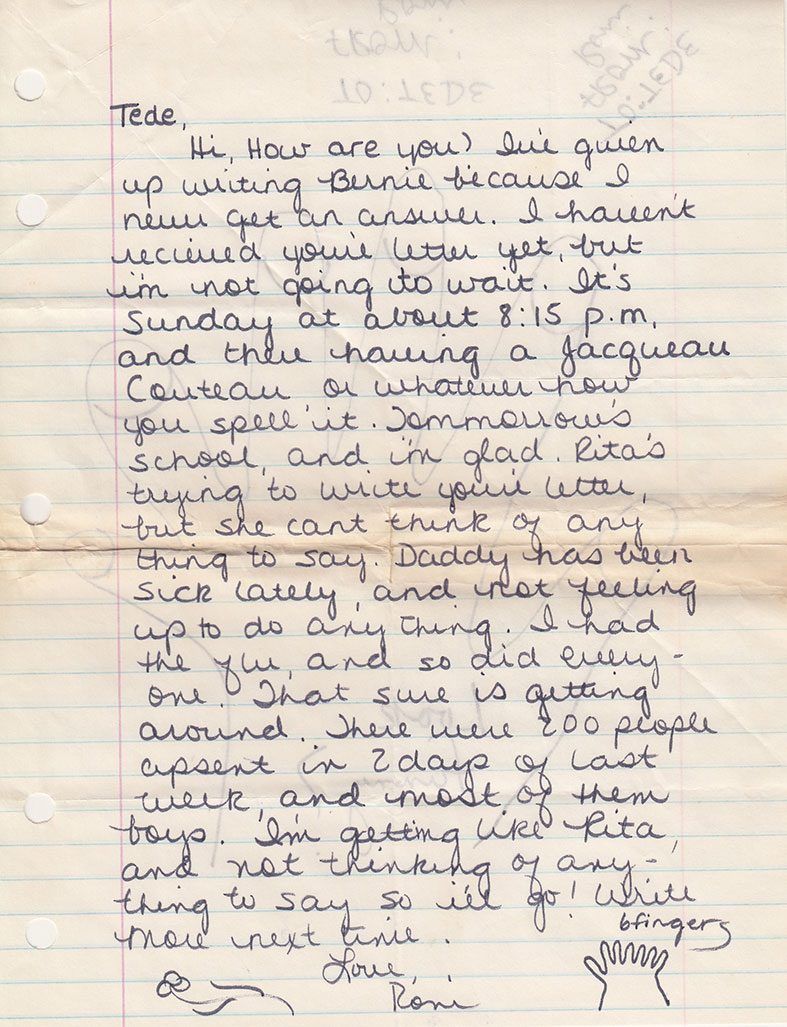 Tede,
Hi, How are you? I've given
up writing Bernie because I
never get an answer. I haven't
recieved you're letter yet, but
i'm not going to wait. It's
Sunday at about 8:15 p.m,
and there having a Jacqueau
Couteau or whatever how
you spell it. Tommorrow's
school, and i'm glad. Rita's
trying to write you're letter,
but she cant think of any
thing to say. Daddy has been
sick lately, and not feeling
up to do any thing. I had
the flu, and so did every-
one. That sure is getting
around. There were 200 people
apsent in 2 days of last
week, and most of them
boys. I'm getting like Rita,
and not thinking of any-
thing to say so i'll go! Write
more next time.
6 fingers
Love,
Roni
TO: TEDE
FROM:
TO: TEDE
FROM: